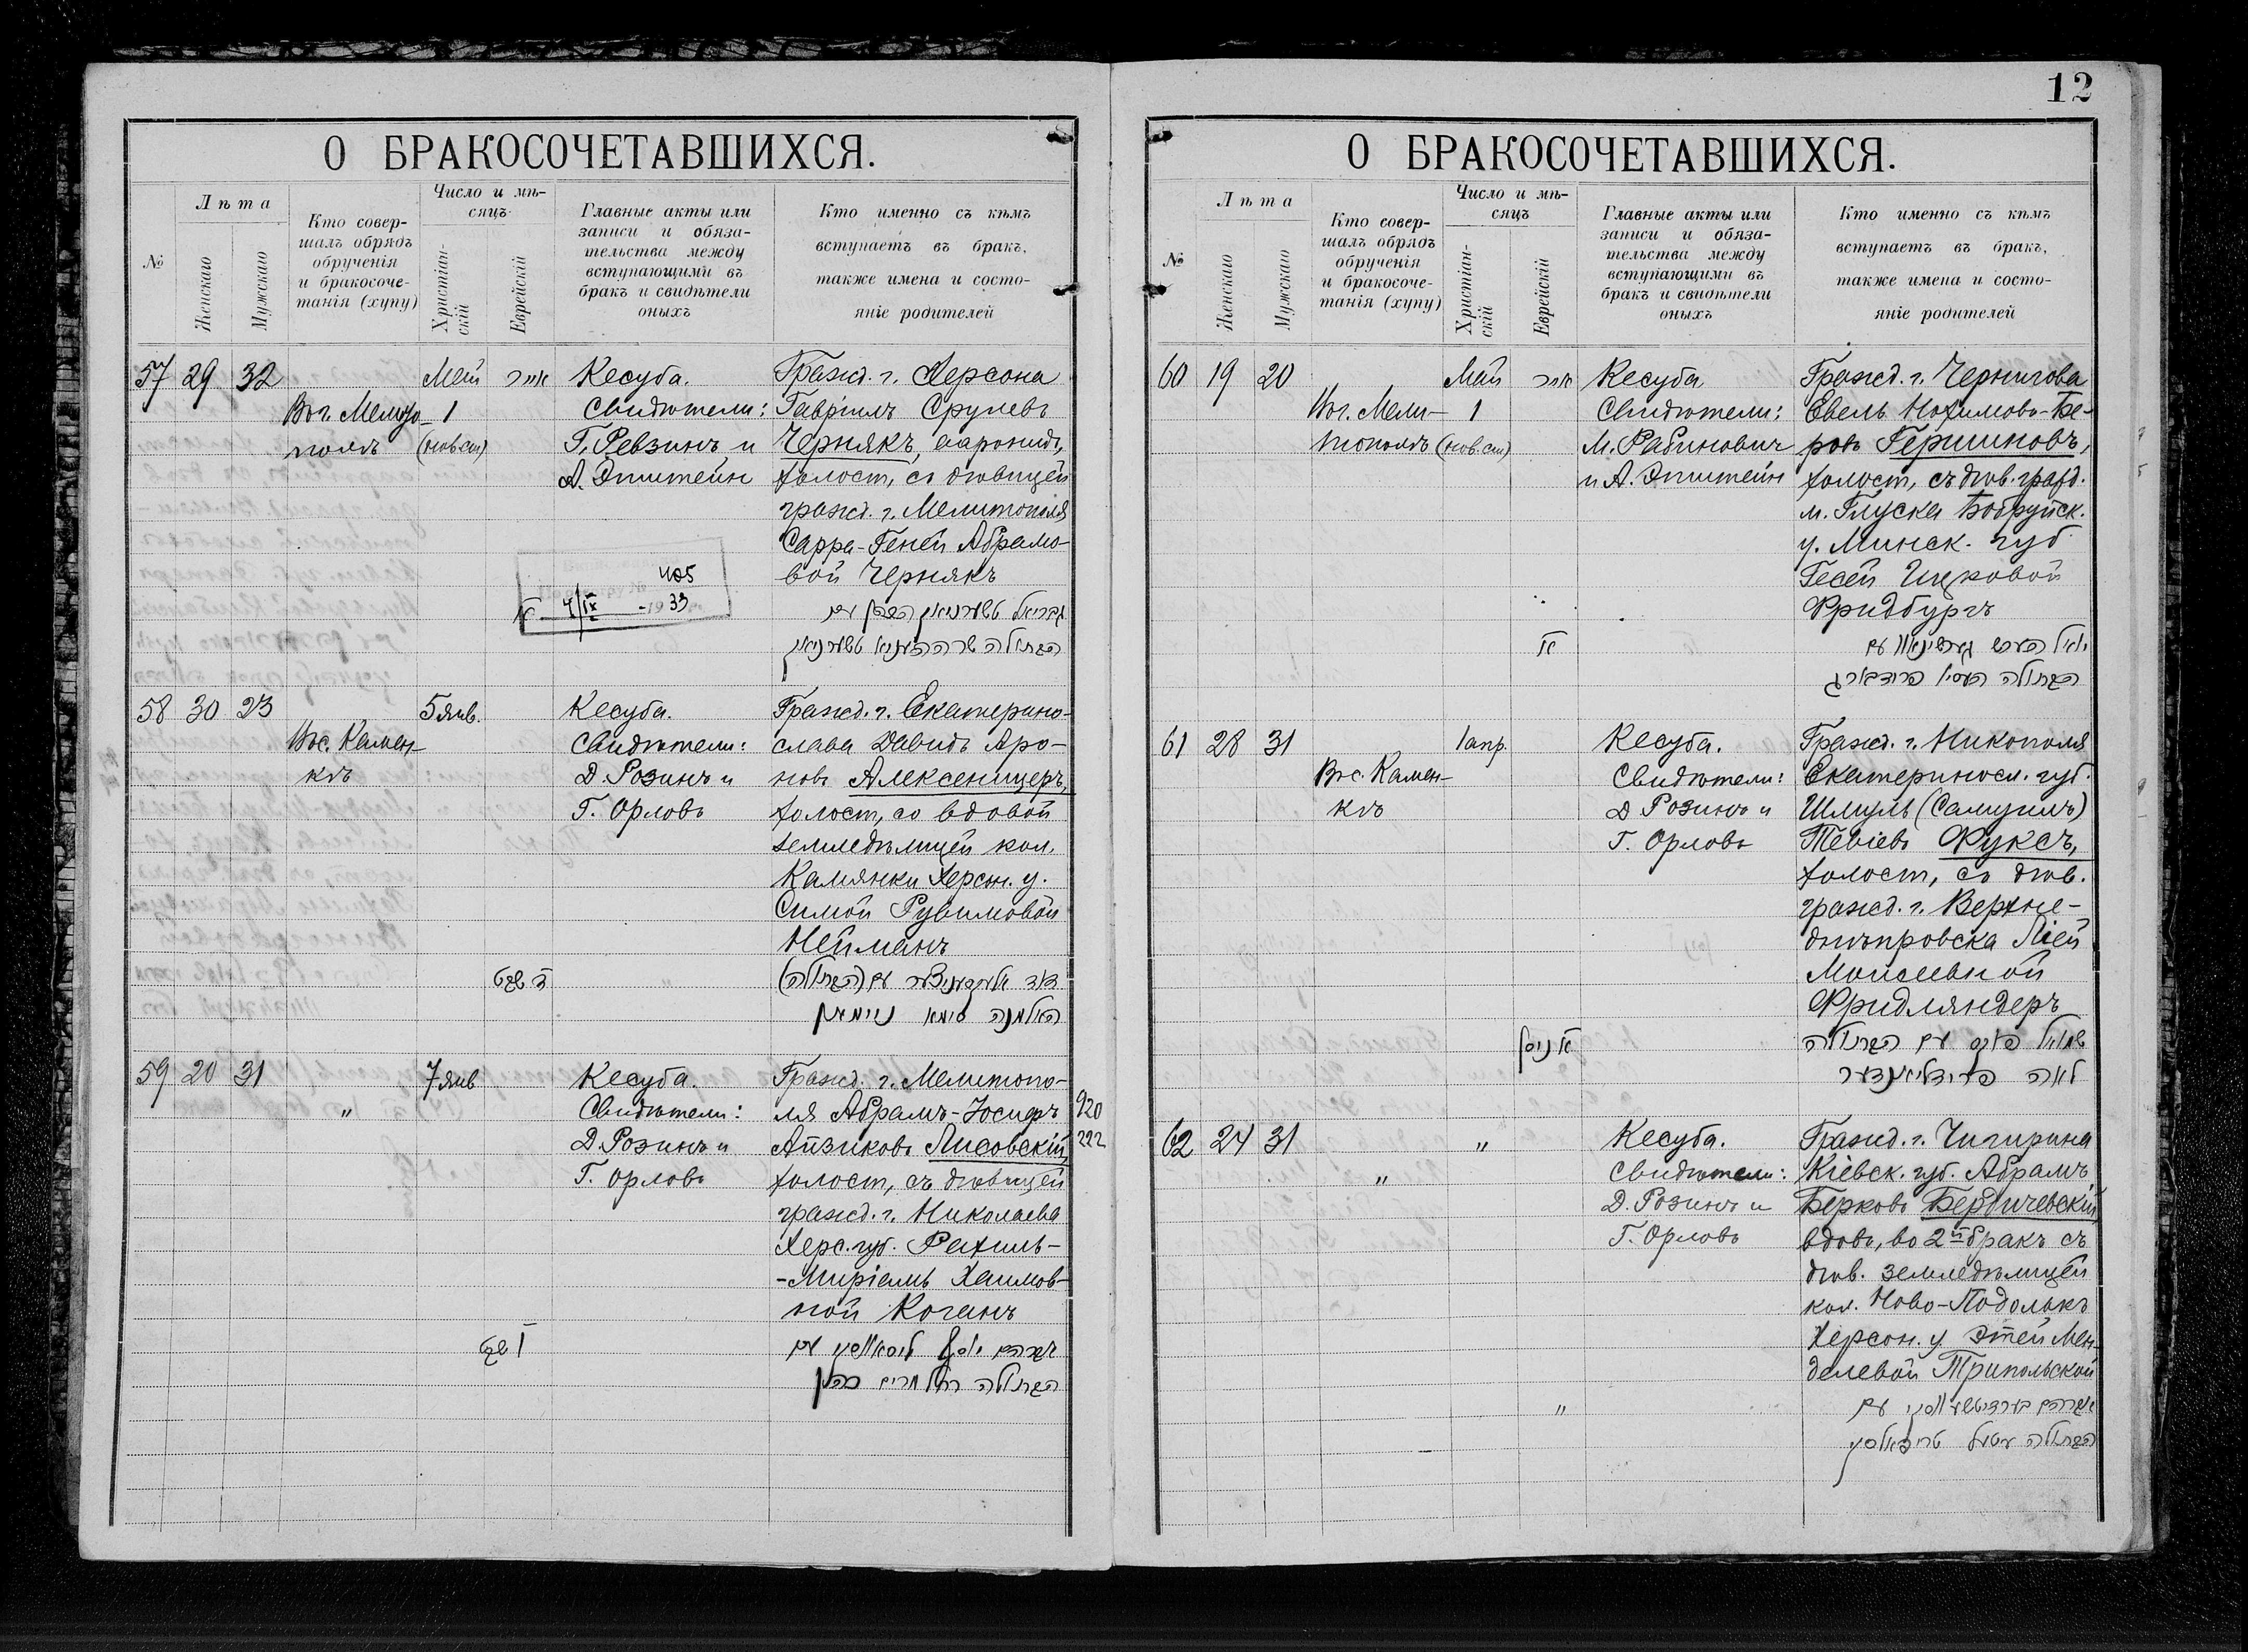 12
О БРАКОСОЧЕТАВШИХСЯ.
№
Лѣта
Женскаго
Мужскаго
Кто совер-
шалъ обрядъ
обрученія
и бракосоче-
танія (хупу)
Число и мѣ-
сяцъ
Христіан-
скій
Еврейскій
Главные акты или
записи и обяза-
тельства между
вступающими въ
бракъ и свидѣтели
оныхъ
Кто именно съ кѣмъ
вступаетъ въ бракъ,
также имена и состо-
яніе родителей
57 29 32
Въ г. Мелито-
полѣ
Май
1
(нов. ст)
אייר
Кесуба.
Свидѣтели:
Г. Ревзинъ и
А. Эпштейн
Гражд. г. Херсона
Гавріилъ Срулевъ
Чернякъ, ааронидъ,
холост, съ дѣвицей
гражд. г. Мелитополя
Сарра-Геней Абрамо-
вой Чернякъ
405
4/IX -1933
גבריאל טשערניאק הכהן עם
הבתולה שרה העניא טשערניאק
58 30 23
Въ с. Камен-
кѣ
5 янв.
Кесуба.
Свидѣтели:
Д. Розинъ и
Г. Орловъ
Гражд. г. Екатерино-
слава Давидъ Аро-
новъ Алексеницеръ,
холост, со вдовой
земледѣлицей кол.
Камянки Херсон. у.
Симой Рувимовой
Нейманъ
שבט
דוד אלעקסעניצער עם (הבתולה)
האלמנה סימא ניימאן
59 20 31
"
7 янв
Кесуба.
Свидѣтели:
Д. Розинъ и
Г. Орловъ
Гражд. г. Мелитопо-
ля Абрамъ-Іосифъ
Айзиковъ Лисовскій,
холост, съ дѣвицей
гражд. г. Николаева
Херс. губ. Рахиль-
-Миріамъ Хаимов-
ной Коганъ
920
222
שבט
אברהם יוסף ליסאווסקי עם
הבתולה רחל מרים כהן
О БРАКОСОЧЕТАВШИХСЯ.
№
Лѣта
Женскаго
Мужскаго
Кто совер-
шалъ обрядъ
обрученія
и бракосоче-
танія (хупу)
Число и мѣ-
сяцъ
Христіан-
скій
Еврейскій
Главные акты или
записи и обяза-
тельства между
вступающими въ
бракъ и свидѣтели
оныхъ
Кто именно съ кѣмъ
вступаетъ въ бракъ,
также имена и состо-
яніе родителей
60 19 20
Въ г. Мели-
тополѣ
Май
1
(нов. ст)
אייר
Кесуба
Свидѣтели:
М. Рабинович
и А. Эпштейн
Гражд. г. Чернигова
Евель Нохимово-Бе-
ровъ Гершиновъ,
холост, съ дѣв. гражд.
м. Глуска Бобруйск.
у. Минск. губ
Гесей Ицковой
Фридбургъ
עם
הבתולה העסיא פרידבורג
61 28 31
Въ с. Камен-
кѣ
1 апр.
Кесуба.
Свидѣтели:
Д Розинъ и
Г. Орловъ
Гражд. г. Никополя
Екатериносл. губ.
Шмуль (Самуилъ)
Тевіевъ Фуксъ,
холост, съ дѣв.
гражд. г. Верхне-
днѣпровска Ліей
Моисеевной
Фридляндеръ
ניסן
שמואל פוקס עם הבתולה
לאה פרידליאנדער
62 24 31
"
"
Кесуба.
Свидѣтели:
Д. Розинъ и
Г. Орловъ
Гражд. г. Чигирина
Кіевск. губ. Абрамъ
Берковъ Бердичевскій
вдовъ, во 2й бракъ съ
дѣв. земледѣлицей
кол. Ново-Подольскъ
Херсон. у Этей Мен-
делевой Трипольской
"
אברהם בערדיטשעווסקי עם
הבתולה עטיל טריפאלסקי